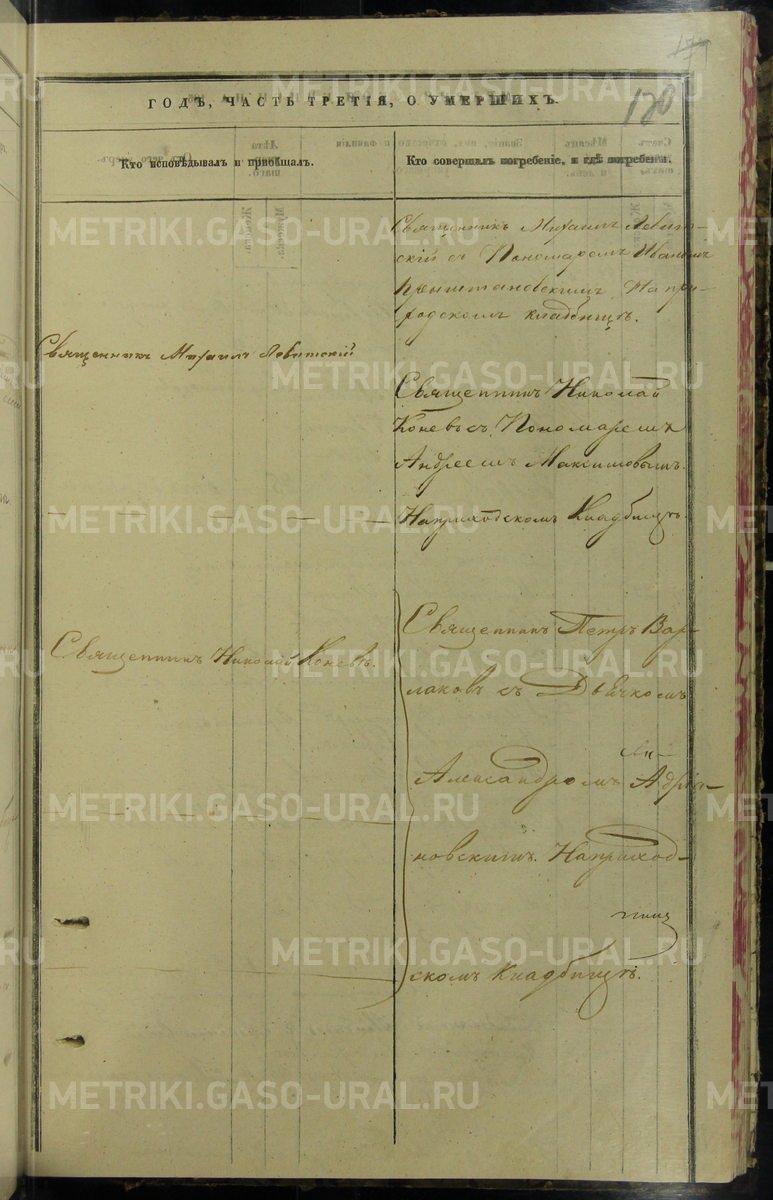 179
180
ГОДЪ, ЧАСТЬ ТРЕТІЯ, О УМЕРШИХЪ.
Кто исповѣдывалъ и пріобщалъ.
Кто совершалъ погребеніе, и гдѣ погребены.
Священникъ Михаилъ Левит-
скій съ Пономаремъ Иваномъ
На при-
ходскомъ кладбищѣ.
Священникъ Михаилъ Левитскій
Священникъ Николай
Коневъ съ Пономаремъ
Андреемъ Максимовымъ.
Наприходскомъ Кладбищѣ.
Священникъ Николай Коневъ.
Священникъ Петръ Вар
лаковъ съ Дьячкомъ
Александромъ Адріа-
новскимъ. Наприход-
скомъ Кладбищѣ.
METRIKI.GASO-URAL.RU